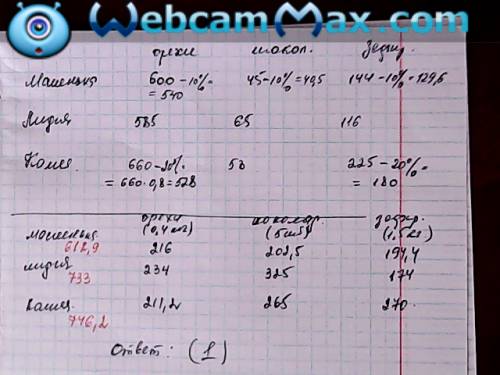 WebcamMax.com
орехи шокол. зефир.
Машенька 600 - 10% = 45 - 10% = 40,5 144 - 10% = 129,6
= 540
Лидия 585 65 116
660 - 20% 53 225 - 20% =
= 660 · 0,8 = 528 = 180
орехи шоколад. зефир.
(0,4 кг) (5 шт) (1,5 кг)
Машенька 216 202,5 194,4
612,9
Лидия 234 325 174
733
211,2 265 270
746,2
Ответ: (1)